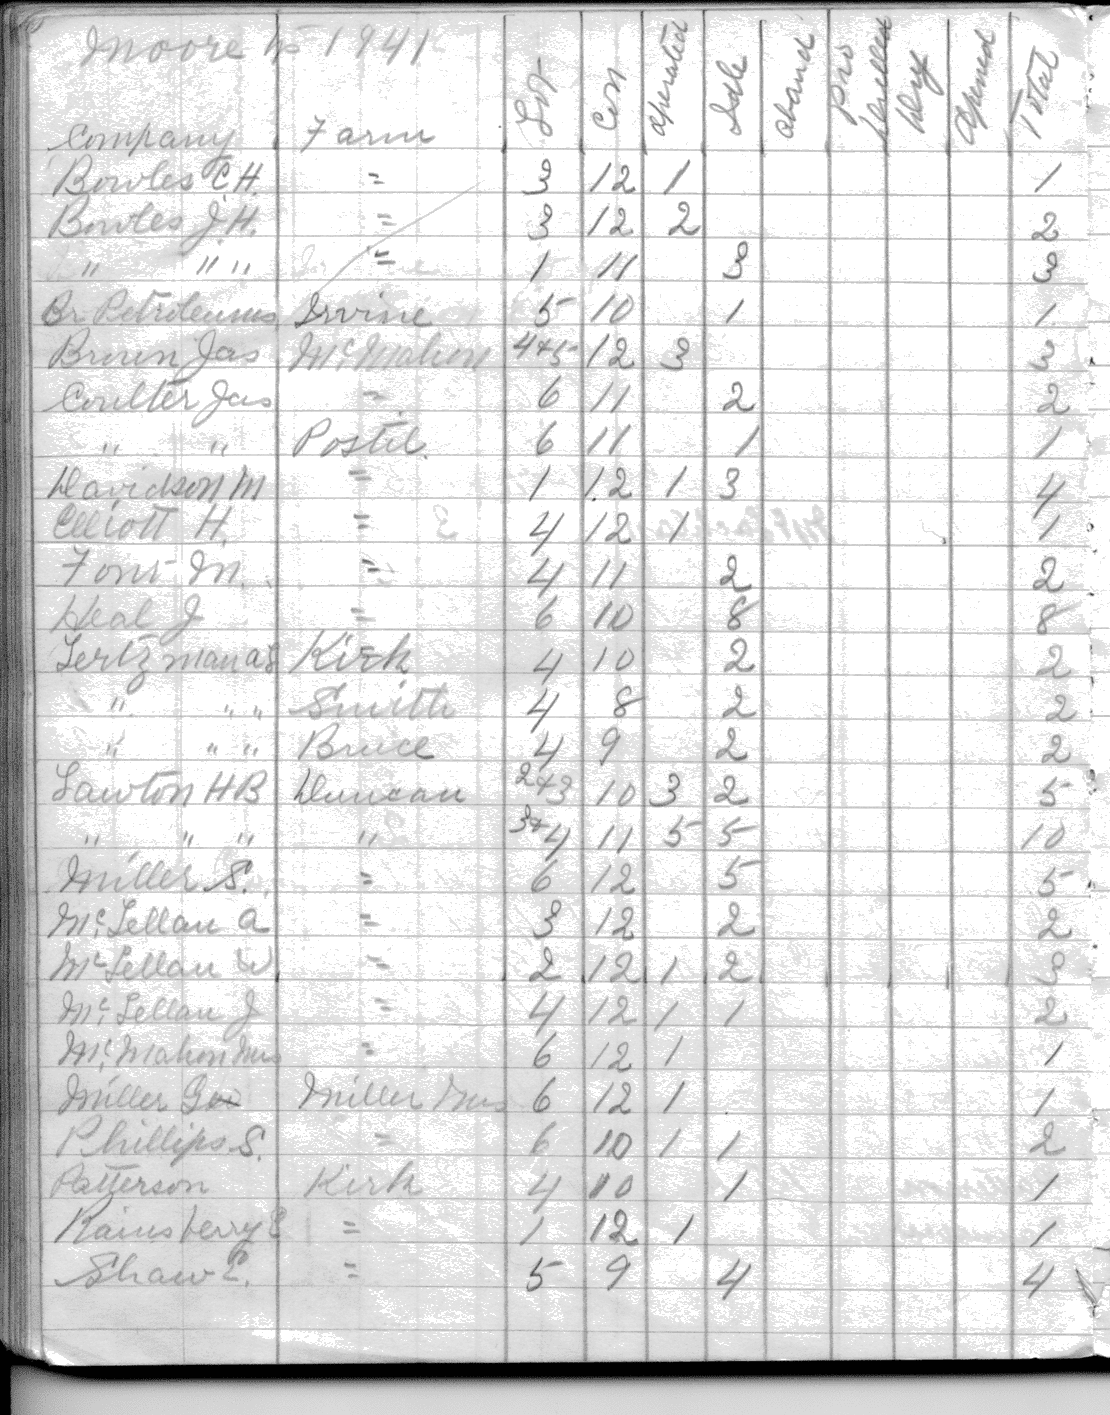 Moore tp 1941
Company Farm Lot Con operated Idle aband Pro Drilled Dry opened Total
Bowles C.H. = 3 12 1 1
Bowles J.H. = 3 12 2 2
" " " = 1 11 3 3
Br Petroleums Irvine 5 10 1 1
Brown Jas McMahon 4+5 12 3 3
Coulter Jas = 6 11 2 2
" " Postil. 6 11 1 1
Davidson M = 1 12 1 3 4
Elliott H. = 4 12 1 1
M. = 4 11 2 2
Heal J = 6 10 8 8
Kirk 4 10 2 2
" " " Smith 4 8 2 2
" " " Bruce 4 9 2 2
Lawton HB Duncan 2+3 10 3 2 5
" " " " 3+4 11 5 5 10
Miller S. = 6 12 5 5
McLellan A = 3 12 2 2
McLellan W = 2 12 1 2 3
McLellan J = 4 12 1 1 2
McMahon Mrs = 6 12 1 1
Miller Geo Miller Mrs 6 12 1 1
Phillips S. = 6 10 1 1 2
Patterson Kirk 4 10 1 1
Rainsberry E = 1 12 1 1
Shaw E. = 5 9 4 4